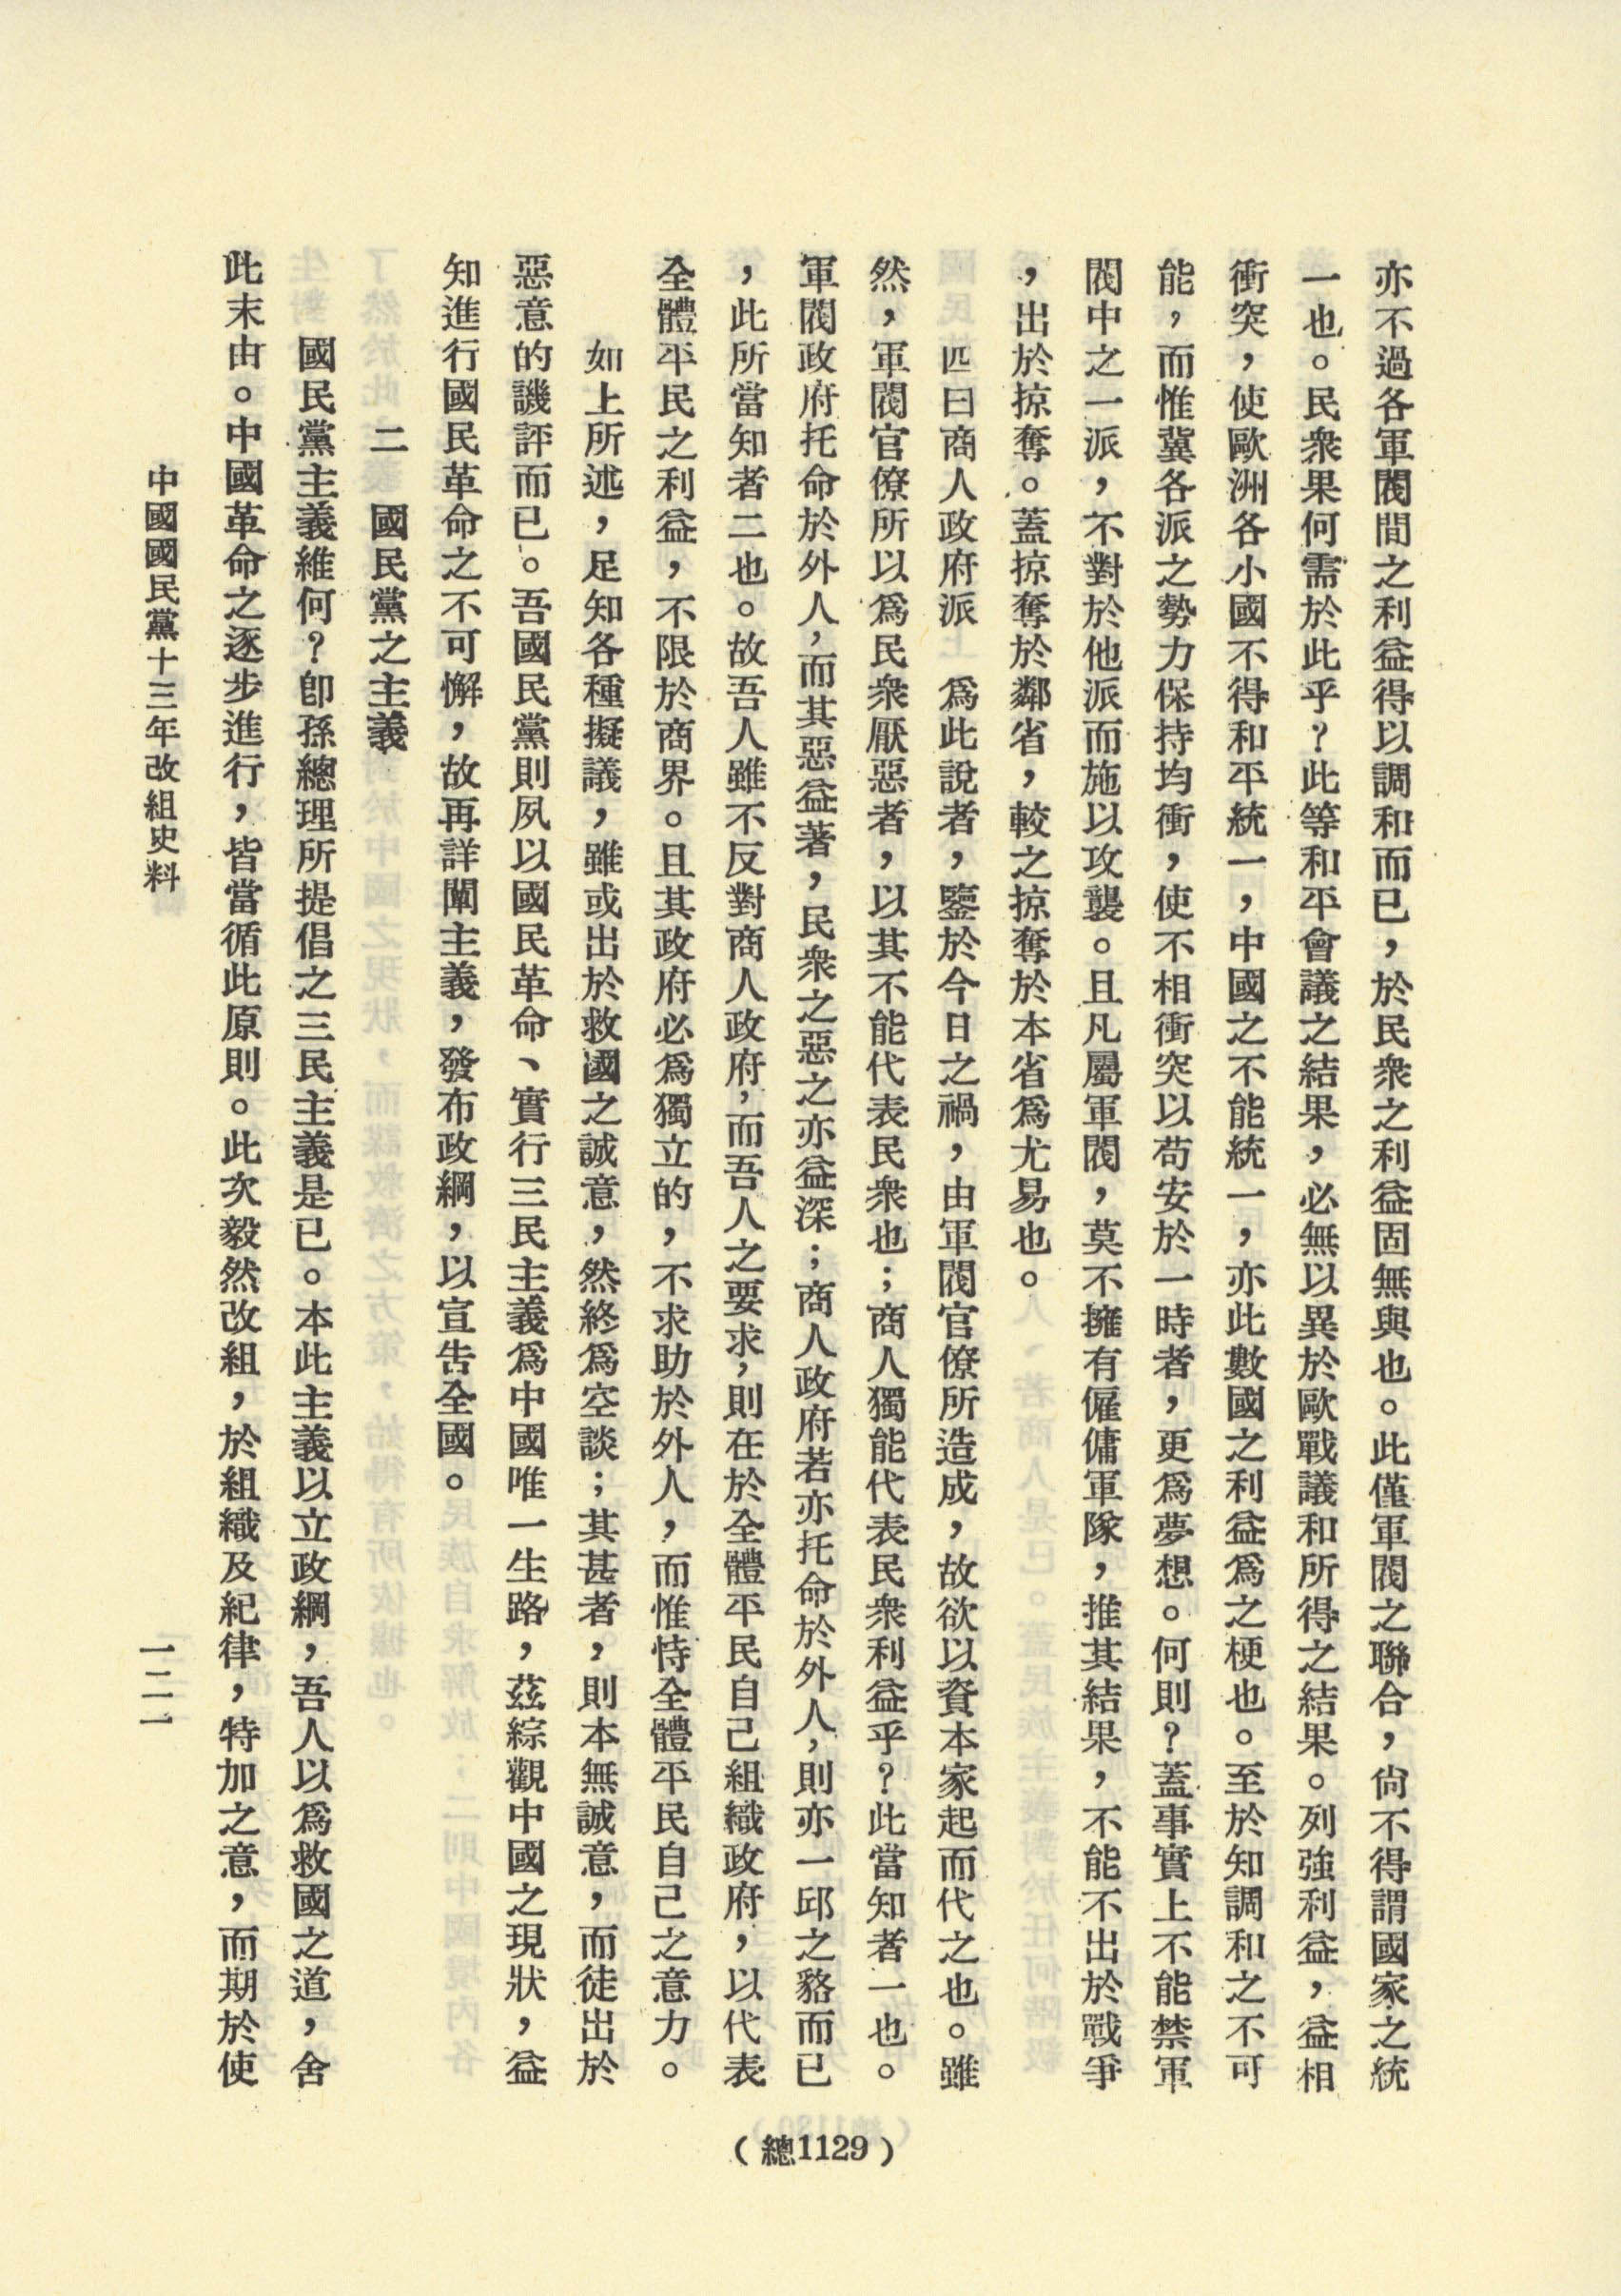 亦不過各軍閥間之利益得以調和而已，於民衆之利益固無與也。此僅軍閥之聯合，尙不得謂國家之統
一也。民衆果何需於此乎？此等和平會議之結果，必無以異於歐戰議和所得之結果。列強利益，益相
衝突，使歐洲各小國不得和平統一，中國之不能統一，亦此數國之利益爲之梗也。至於知調和之不可
能，而惟冀各派之勢力保持均衝，使不相衝突以苟安於一時者，更爲夢想。何則？蓋事實上不能禁軍
閥中之一派，不對於他派而施以攻襲。且凡屬軍閥，莫不擁有僱傭軍隊，推其結果，不能不出於戰爭
，出於掠奪。蓋掠奪於鄰省，較之掠奪於本省爲尤易也。
四曰商人政府派　爲此說者，鑒於今日之禍，由軍閥官僚所造成，故欲以資本家起而代之也。雖
然，軍閥官僚所以爲民衆厭惡者，以其不能代表民衆也；商人獨能代表民衆利益乎？此當知者一也。
軍閥政府托命於外人，而其惡益著，民衆之惡之亦益深；商人政府若亦托命於外人，則亦一邱之貉而已
，此所當知者二也。故吾人雖不反對商人政府，而吾人之要求，則在於全體平民自己組織政府，以代表
全體平民之利益，不限於商界。且其政府必爲獨立的，不求助於外人，而惟恃全體平民自己之意力。
如上所述，足知各種擬議，雖或出於救國之誠意，然終爲空談；其甚者，則本無誠意，而徒出於
惡意的譏評而已。吾國民黨則夙以國民革命、實行三民主義爲中國唯一生路，茲綜觀中國之現狀，益
知進行國民革命之不可懈，故再詳闡主義，發布政綱，以宣告全國。
二　國民黨之主義
國民黨主義維何？卽孫總理所提倡之三民主義是已。本此主義以立政綱，吾人以爲救國之道，舍
此末由。中國革命之逐步進行，皆當循此原則。此次毅然改組，於組織及紀律，特加之意，而期於使
中國國民黨十三年改組史料
一二一
（總1129）